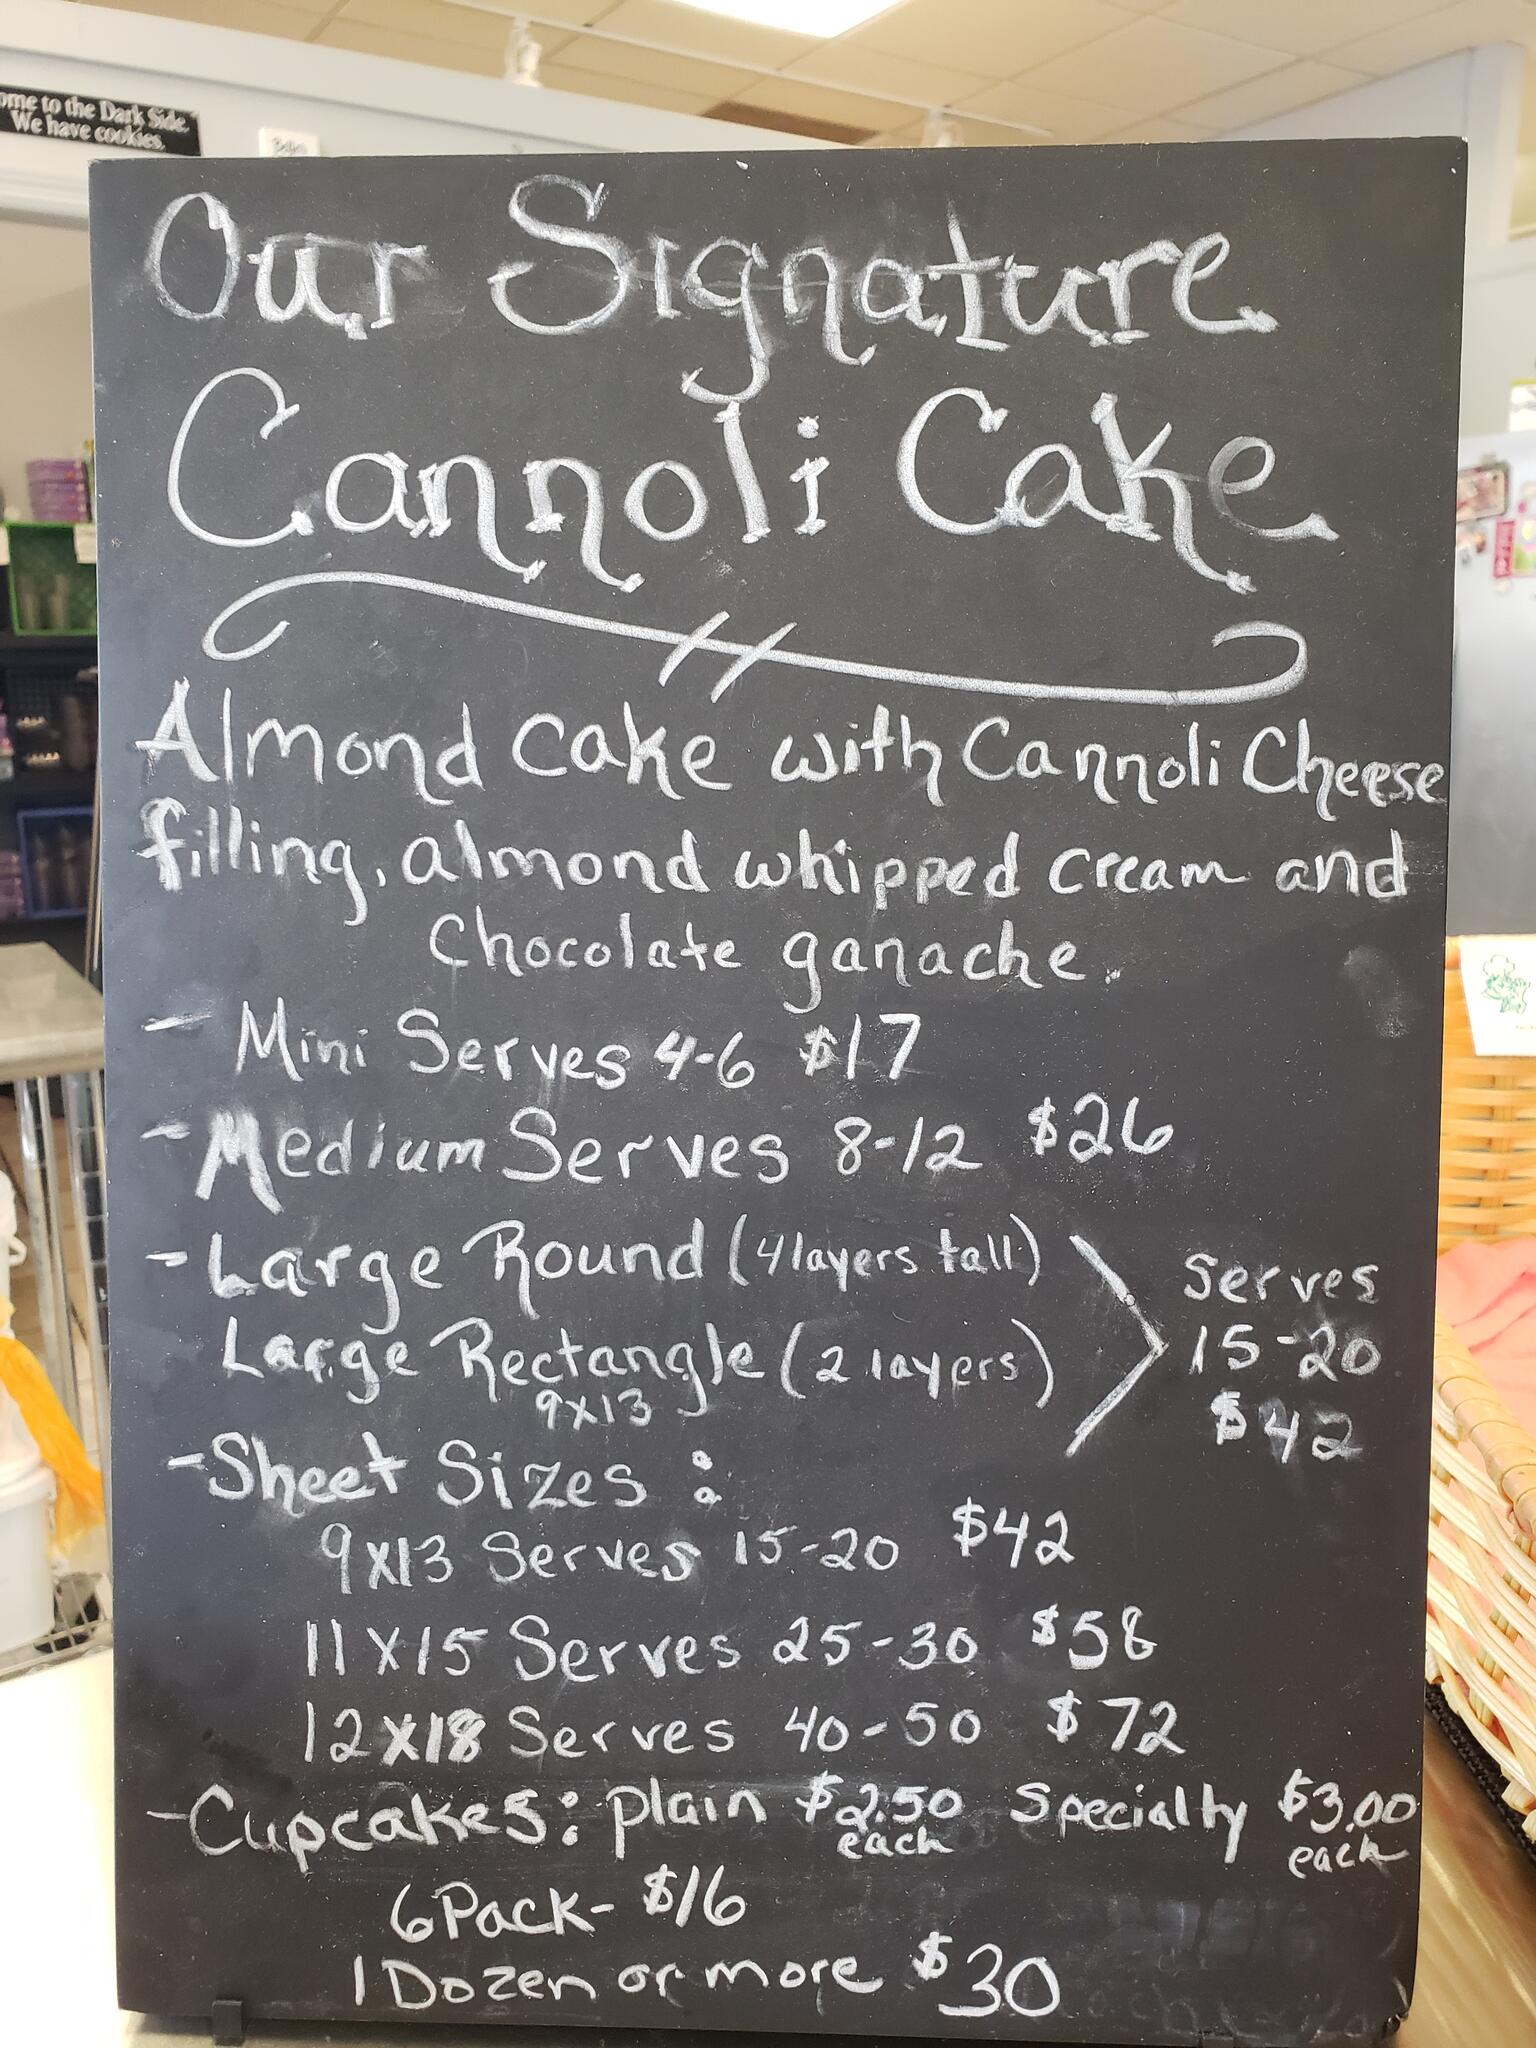 ome to the Dark Side.
We have cookies.
Our Signature
Cannoli Cake
Almond cake with Cannoli Cheese
filling, almond whipped cream and
Chocolate ganache.
- Mini Serves 4-6 $17
- Medium Serves 8-12 $26
- Large Round (4 layers tall)
Large Rectangle (2 layers)
9x13
Serves
15-20
$42
- Sheet Sizes :
9x13 Serves 15-20 $42
11x15 Serves 25-30 $58
12x18 Serves 40-50 $72
- Cupcakes: plain $2.50 each Specialty $3.00 each
6 Pack- $16
1 Dozen or more $30